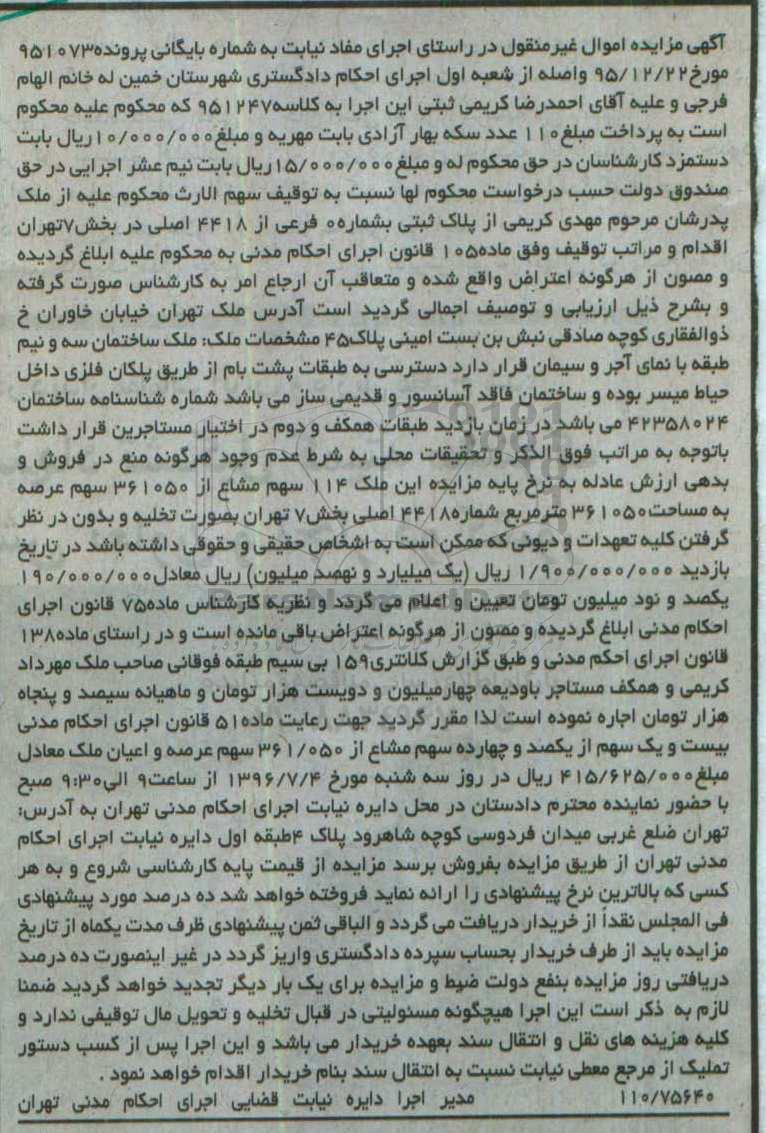 آگهی مزایده اموال غیرمنقول در راستای اجرای مفاد نیابت به شماره بایگانی پرونده۹۵۱۰۷۳
مورخ۹۵/۱۲/۲۲ واصله از شعبه اول اجرای احکام دادگستری شهرستان خمین له خانم الهام
فرجی و علیه آقای احمدرضا کریمی ثبتی این اجرا به کلاسه۹۵۱۲۴۷ که محکوم علیه محکوم
است به پرداخت مبلغ۱۱۰ عدد سکه بهار آزادی بابت مهریه و مبلغ۱۰/۰۰۰/۰۰۰ریال بابت
دستمزد کارشناسان در حق محکوم له و مبلغ۱۵/۰۰۰/۰۰۰ریال بابت نیم عشر اجرایی در حق
صندوق دولت حسب درخواست محکوم لها نسبت به توقیف سهم الارث محکوم علیه از ملک
پدرشان مرحوم مهدی کریمی از پلاک ثبتی بشماره۰ فرعی از ۴۴۱۸ اصلی در بخش۷تهران
اقدام و مراتب توقیف وفق ماده۱۰۵ قانون اجرای احکام مدنی به محکوم علیه ابلاغ گردیده
و مصون از هرگونه اعتراض واقع شده و متعاقب آن ارجاع امر به کارشناس صورت گرفته
و بشرح ذیل ارزیابی و توصیف اجمالی گردید است آدرس ملک تهران خیابان خاوران خ
ذوالفقاری کوچه صادقی نبش بن بست امینی پلاک۴۵ مشخصات ملک: ملک ساختمان سه و نیم
طبقه با نمای آجر و سیمان قرار دارد دسترسی به طبقات پشت بام از طریق پلکان فلزی داخل
حیاط میسر بوده و ساختمان فاقد آسانسور و قدیمی ساز می باشد شماره شناسنامه ساختمان
۴۲۳۵۸۰۲۴ می باشد در زمان بازدید طبقات همکف و دوم در اختیار مستاجرین قرار داشت
باتوجه به مراتب فوق الذکر و تحقیقات محلی به شرط عدم وجود هرگونه منع در فروش و
بدهی ارزش عادله به نرخ پایه مزایده این ملک ۱۱۴ سهم مشاع از ۳۶۱۰۵۰ سهم عرصه
به مساحت۳۶۱۰۵۰ مترمربع شماره۴۴۱۸ اصلی بخش۷ تهران بصورت تخلیه و بدون در نظر
گرفتن کلیه تعهدات و دیونی که ممکن است به اشخاص حقیقی و حقوقی داشته باشد در تاریخ
بازدید ۱/۹۰۰/۰۰۰/۰۰۰ ریال (یک میلیارد و نهصد میلیون) ریال معادل۱۹۰/۰۰۰/۰۰۰
یکصد و نود میلیون تومان تعیین و اعلام می گردد و نظریه کارشناس ماده۷۵ قانون اجرای
احکام مدنی ابلاغ گردیده و مصون از هرگونه اعتراض باقی مانده است و در راستای ماده۱۳۸
قانون اجرای احکم مدنی و طبق گزارش کلانتری۱۵۹ بی سیم طبقه فوقانی صاحب ملک مهرداد
کریمی و همکف مستاجر باودیعه چهارمیلیون و دویست هزار تومان و ماهیانه سیصد و پنجاه
هزار تومان اجاره نموده است لذا مقرر گردید جهت رعایت ماده۵۱ قانون اجرای احکام مدنی
بیست و یک سهم از یکصد و چهارده سهم مشاع از ۳۶۱/۰۵۰ سهم عرصه و اعیان ملک معادل
مبلغ۴۱۵/۶۲۵/۰۰۰ ریال در روز سه شنبه مورخ ۱۳۹۶/۷/۴ از ساعت۹ الی۹:۳۰ صبح
با حضور نماینده محترم دادستان در محل دایره نیابت اجرای احکام مدنی تهران به آدرس:
تهران ضلع غربی میدان فردوسی کوچه شاهرود پلاک ۴طبقه اول دایره نیابت اجرای احکام
مدنی تهران از طریق مزایده بفروش برسد مزایده از قیمت پایه کارشناسی شروع و به هر
کسی که بالاترین نرخ پیشنهادی را ارائه نماید فروخته خواهد شد ده درصد مورد پیشنهادی
فی المجلس نقداً از خریدار دریافت می گردد و الباقی ثمن پیشنهادی ظرف مدت یکماه از تاریخ
مزایده باید از طرف خریدار بحساب سپرده دادگستری واریز گردد در غیر اینصورت ده درصد
دریافتی روز مزایده بنفع دولت ضبط و مزایده برای یک بار دیگر تجدید خواهد گردید ضمنا
لازم به ذکر است این اجرا هیچگونه مسئولیتی در قبال تخلیه و تحویل مال توقیفی ندارد و
کلیه هزینه های نقل و انتقال سند بعهده خریدار می باشد و این اجرا پس از کسب دستور
تملیک از مرجع معطی نیابت نسبت به انتقال سند بنام خریدار اقدام خواهد نمود .
۱۱۰/۷۵۶۴۰ مدیر اجرا دایره نیابت قضایی اجرای احکام مدنی تهران